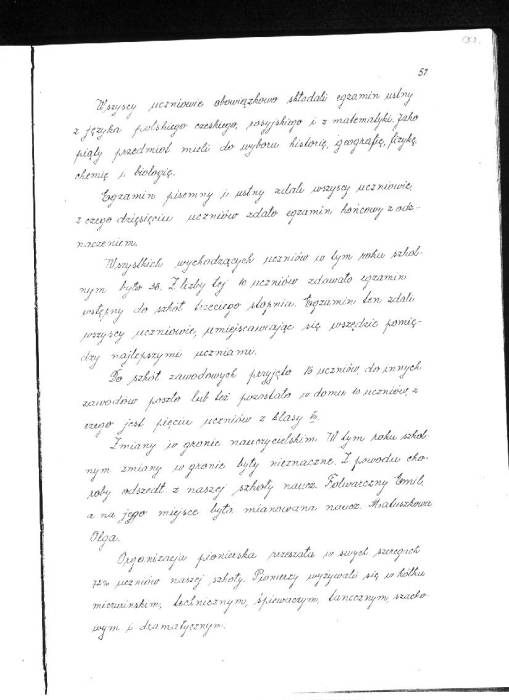 57
Wszyscy uczniowie obowiązkowo składali egzamin ustny
z języka polskiego czeskiego, rosyjskiego i z matematyki, jako
piąty przedmiot mieli do wyboru historię, geografię, fizykę
chemię i biologię.
Egzamin pisemny i ustny zdali wszyscy uczniowie,
z czego dziesięciu uczniów zdało egzamin końcowy z odz-
naczeniem.
Wszystkich wychodzących uczniów w tym roku szkol-
nym było 36. Z liczby tej 10 uczniów zdawało egzamin
wstępny do szkół trzeciego stopnia. Egzamin ten zdali
wszyscy uczniowie, umiejscawiając się wszędzie pomię-
dzy najlepszymi uczniami.
Do szkół zawodowych przyjęto 16 uczniów, do innych
zawodów poszło lub też pozostało w domu 10 uczniów, z
czego jest pięciu uczniów z klasy
Zmiany w gronie nauczycielskim. W tym roku szkol-
nym zmiany w gronie były nieznaczne. Z powodu cho-
roby odszedł z naszej szkoły naucz. Folwarczny Emil,
a na jego miejsce była mianowana naucz. Matuszkowa
Olga.
Organizacja pionierska zrzeszała w swych szeregach
72% uczniów naszej szkoły. Pionierzy wyżywali się w kółku
miczurińskim, technicznym, śpiewaczym, tanecznym, szacho-
wym i dramatycznym.